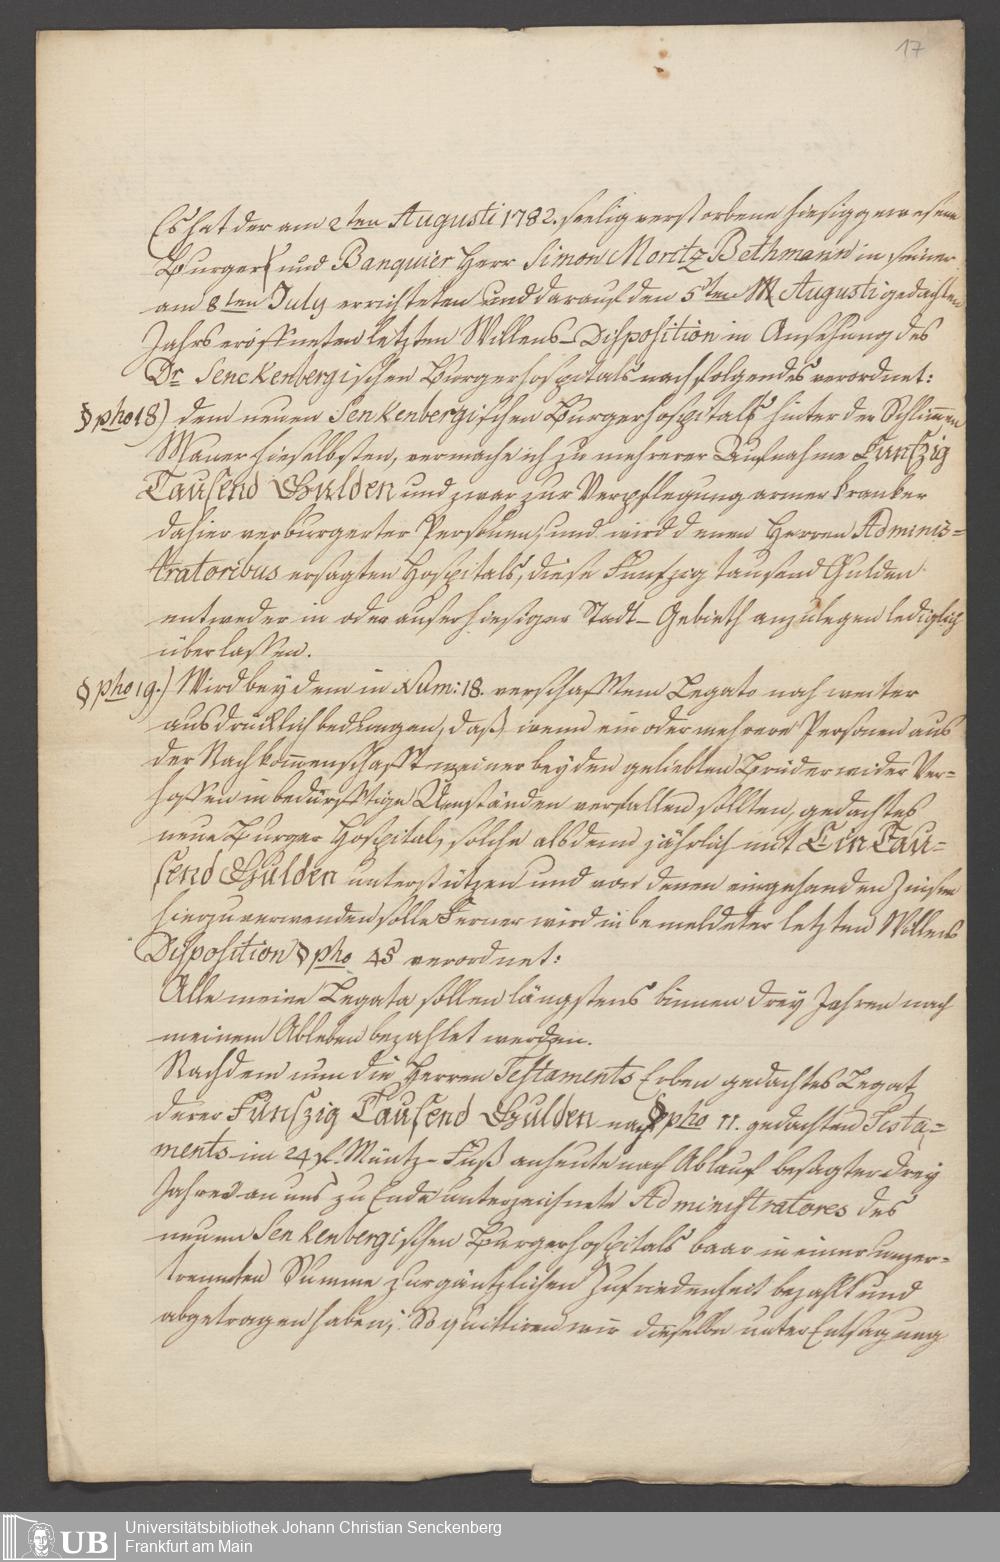 17
Es hat der am 2ten Augusti 1782. seelig verstorbene hiesig gewesene
Burger und Banquier Herr Simon Moritz Bethmann in seiner
am 8ten July errichteten und darauf den 5ten Augusti gedachten
Jahrs eröffneten letzten Willens-Disposition in Ansehung des
Dr. Senckenbergischen Burgerhospitals nachfolgendes verordnet:
§pho 18) dem neuen Senkenbergischen Burgerhospital hinter der Schlimmen
Mauer hieselbsten, vermache ich zu mehrerer Aufnahme Funfzig
Tausend Gulden und zwar zur Verpflegung armer kranker
dahier verburgerter Personen, und wird denen Herren Adminis=
tratoribus ersagten Hospitals, diese Funfzig tausend Gulden
entweder in oder auser hiesiger Stadt-Gebieth anzulegen lediglich
überlassen.
§pho 19.) Wird bey dem in Num: 18. verschafftem Legato noch weiter
ausdrücklich bedungen, daß wenn ein oder mehrere Personen aus
der Nachkommenschafft meiner beyden geliebten Brüder wider Ver=
hoffen in bedürfftige Umständen verfallen sollten, gedachtes
neue Burger Hospital, solche alsdenn jährlich mit Ein Tau=
send Gulden unterstützen und von denen eingehenden Zinsen
hierzu verwenden solle. Ferner wird in bemeldeter letzten Willens
Disposition §pho 45 verordnet:
Alle meine Legata sollen längstens binnen drey Jahren nach
meinem Ableben bezahlet werden.
Nachdem nun die Herren Testaments Erben gedachtes Legat
derer Funfzig Tausend Gulden nach §pho 11. gedachten Testa=
ments im 24 fl. Müntz-Fuß anheute nach Ablauf besagter drey
Jahre an uns zu Ende unterzeichnete Administratores des
neuen Senkenbergischen Burgerhospitals baar in einer unzer=
trennten Summe zur gäntzlichen Zufriedenheit bezahlt und
abgetragen haben; So quittiren wir dieselbe unter Entsagung
UB
Universitätsbibliothek Johann Christian Senckenberg
Frankfurt am Main